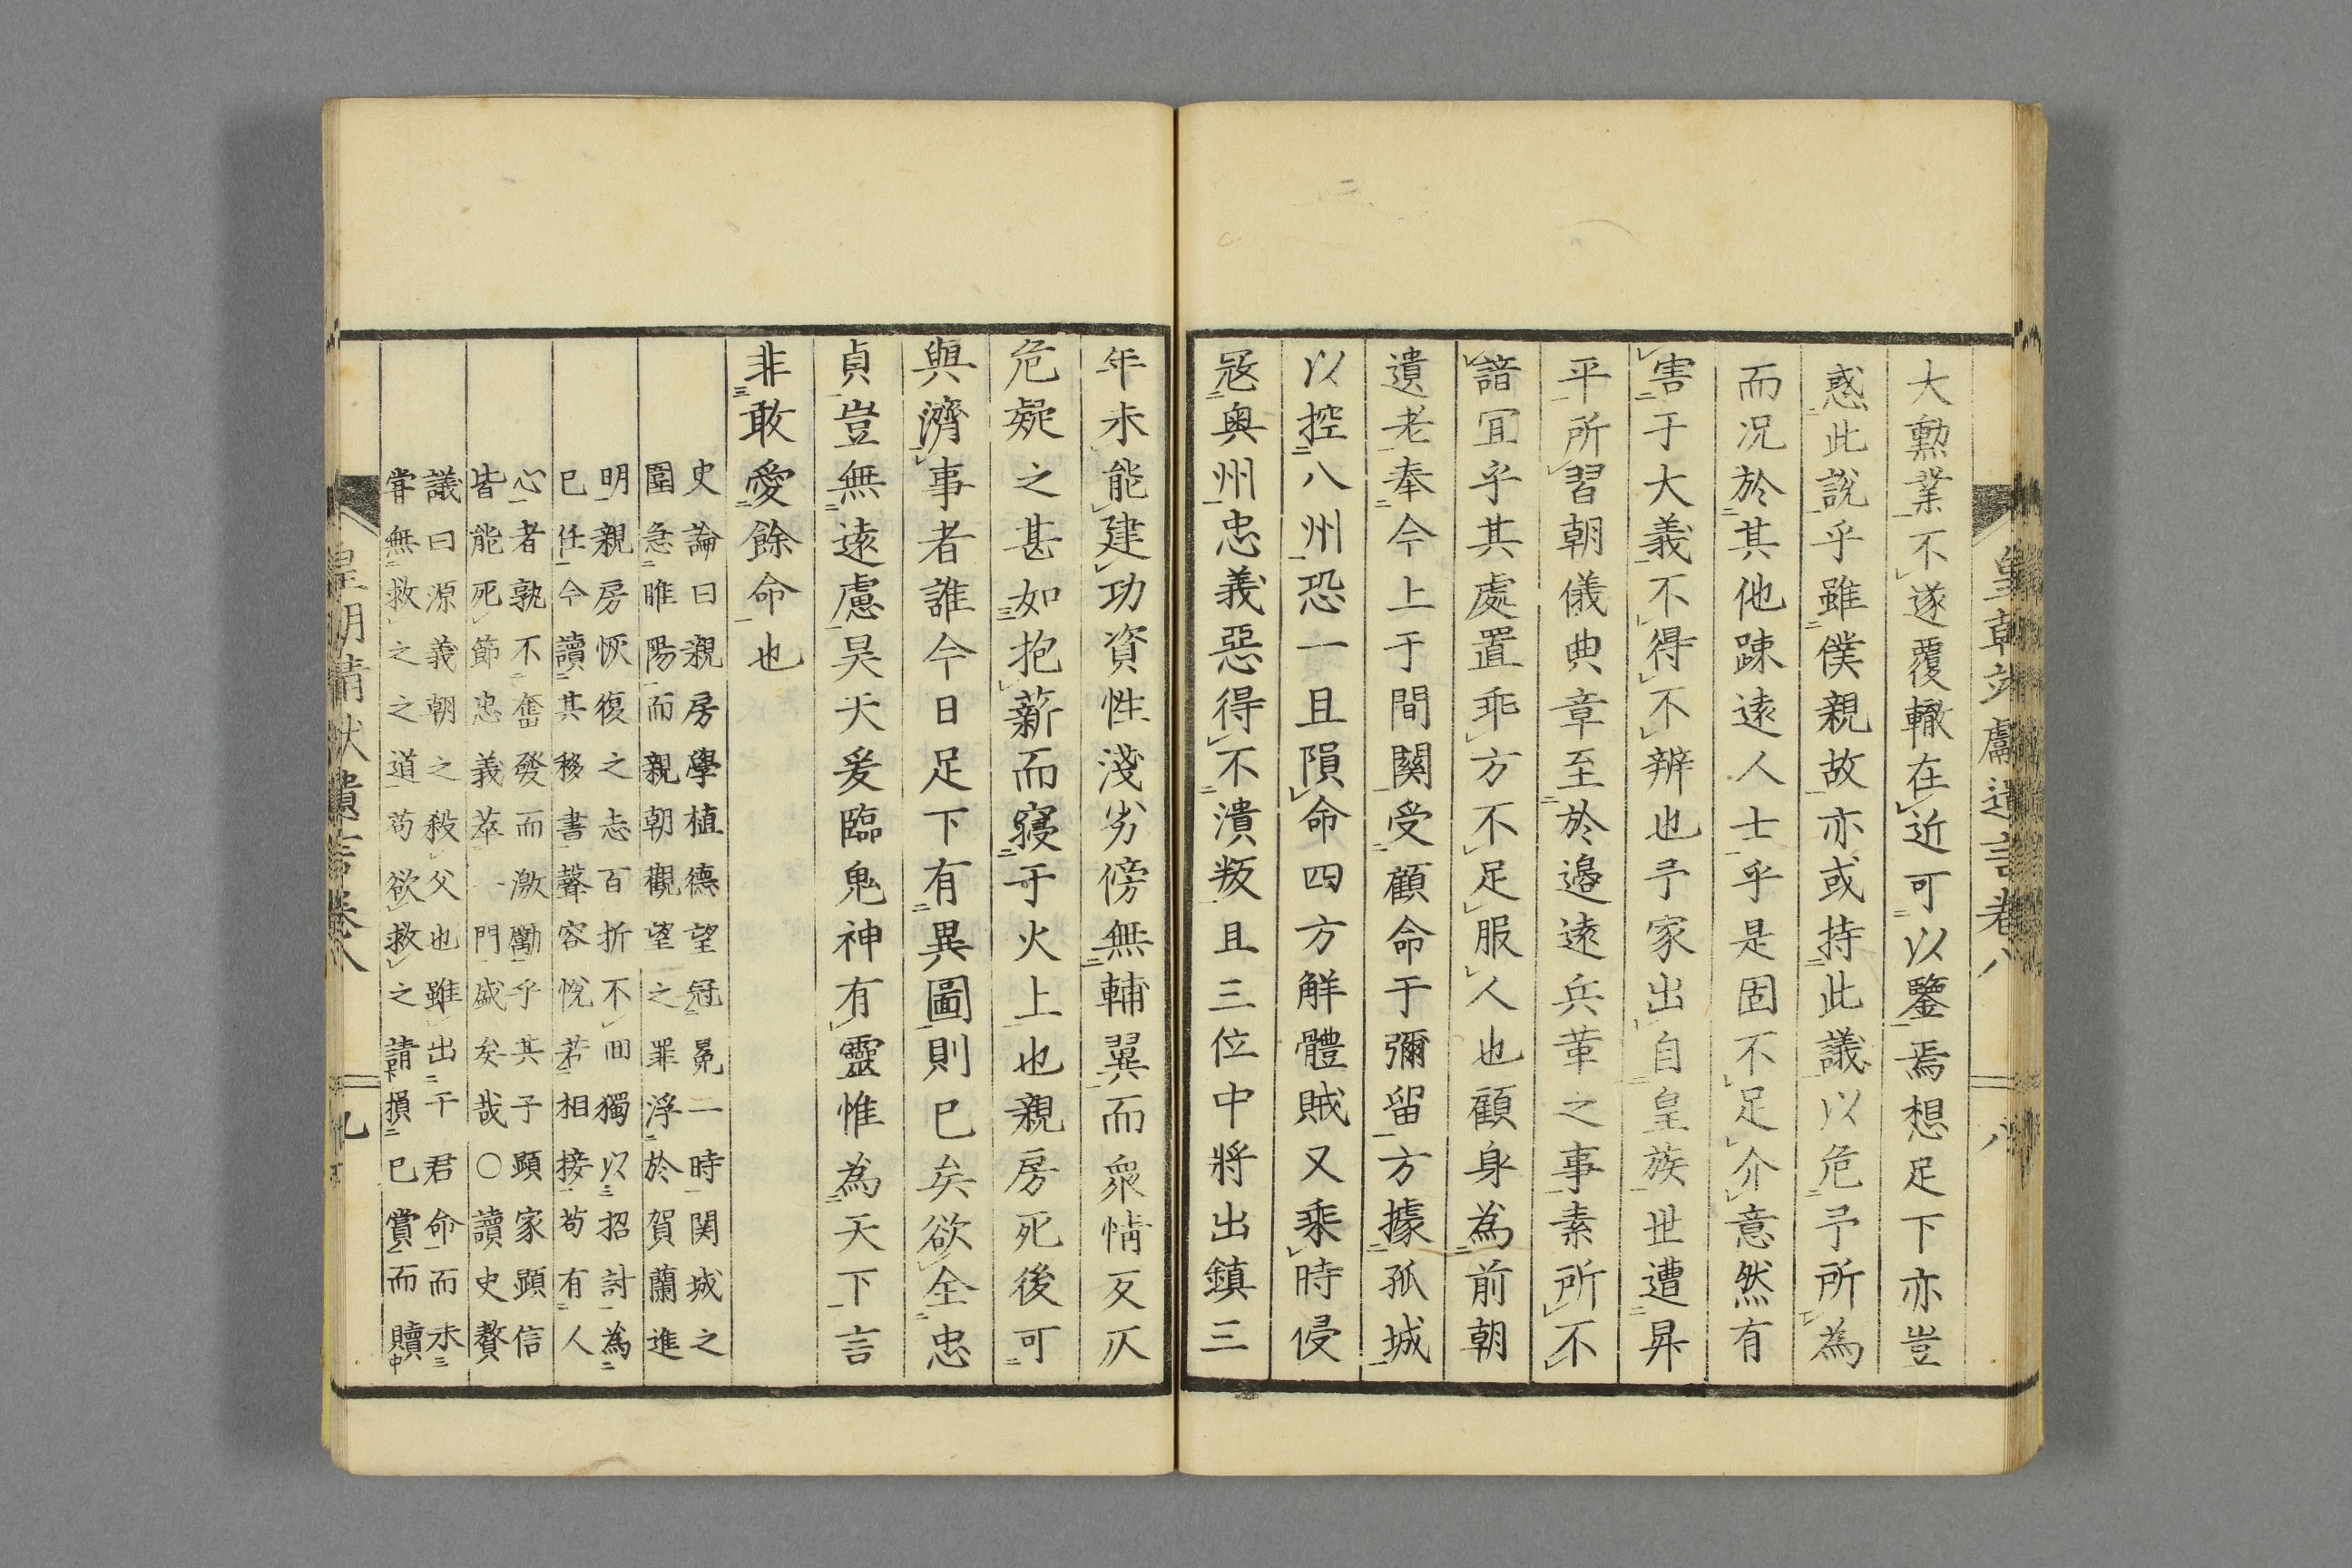 大勲業不遂覆轍在近可以鑒焉想足下亦豈
惑此說乎雖僕親故亦或持此議以危予所為
而況於其他踈遠人士乎是固不足介意然有
害于大義不得不辨也予家出自皇族世遭昇
平所習朝儀典章至於邉遠兵革之事素所不
諳冝乎其處置乖方不足服人也顧身為前朝
遺老奉今上于間關受顧命于彌留方據孤城
以控八州恐一旦隕命四方解體賊又乘時侵
冦奥州忠義惡得不潰叛且三位中將出鎮三
年未能建功資性淺劣傍無輔翼而衆情反仄
危疑之甚如抱薪而寝于火上也親房死後可
與濟事者誰今日足下有異圖則已矣欲全忠
貞豈無遠慮昊天爰臨鬼神有靈惟為天下言
非敢愛餘命也
史論曰親房學植德望冠冕一時関城之
圍急睢陽而親朝觀望之罪浮於賀蘭進
明親房恢復之志百折不回獨以招討為
已任今讀其移書聲容恍若相接苟有人
心者孰不奮發而激勵乎其子顕家顕信
皆能死節忠義萃一門盛矣哉○讀史贅
議曰源義朝之殺父也雖出于君命而未
甞無救之之道苟欲救之請損已賞而贖
皇朝靖獻遺言卷八 八
皇朝靖獻遺言卷八 九